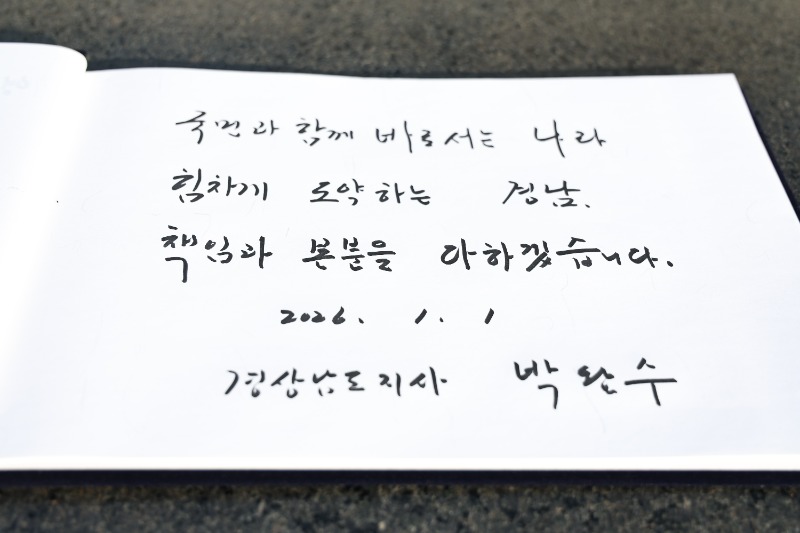 국민과 함께 바로서는 나라
힘차게 도약하는 경남.
책임과 본분을 다하겠습니다.
2026. 1. 1
경상남도지사 박완수